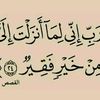 رَبِّ إِنِّي لِمَا أَنزَلْتَ إِلَيَّ
مِنْ خَيْرٍ فَقِيرٌ ٢٤
القصص